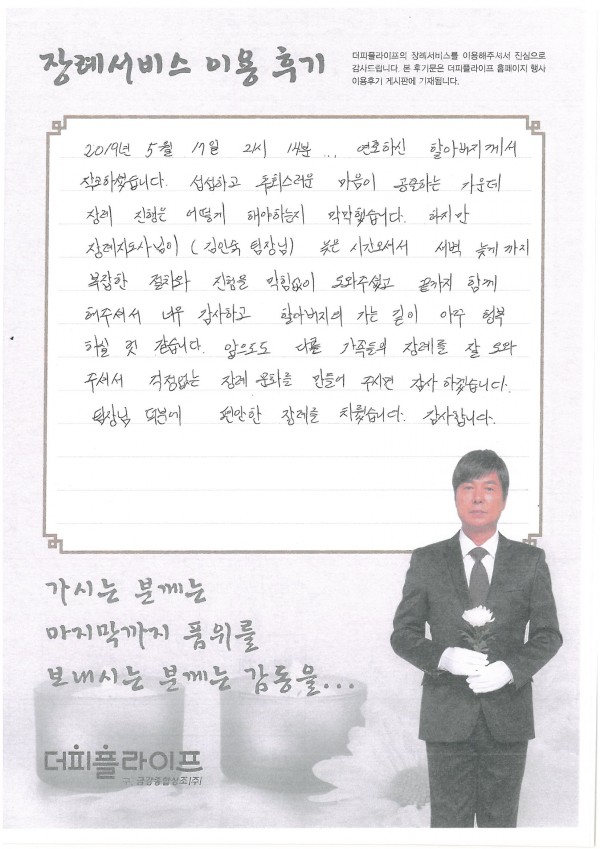 장례서비스 이용 후기
더피플라이프의 장례서비스를 이용해주셔서 진심으로
감사드립니다. 본 후기문은 더피플라이프 홈페이지 행사
이용후기 게시판에 기재됩니다.
2019년 5월 17일 21시 14분... 연로하신 할아버지께서
작고하셨습니다. 섭섭하고 후회스러운 마음이 공존하는 가운데
장례 진행은 어떻게 해야하는지 막막했습니다. 하지만
장례지도사님이 (김인숙 팀장님) 늦은 시간오셔서 새벽 늦게 까지
복잡한 절차와 진행을 막힘없이 도와주셨고 끝까지 함께
해주셔서 너무 감사하고 할아버지의 가는 길이 아주 행복
하실 것 같습니다. 앞으로도 다른 가족들의 장례를 잘 도와
주셔서 걱정없는 장례 문화를 만들어 주시면 감사 하겠습니다.
팀장님 덕분에 편안한 장례를 치뤘습니다. 감사합니다.
가시는 분께는
마지막까지 품위를
보내시는 분께는 감동을...
더피플라이프
구. 금강종합상조(주)